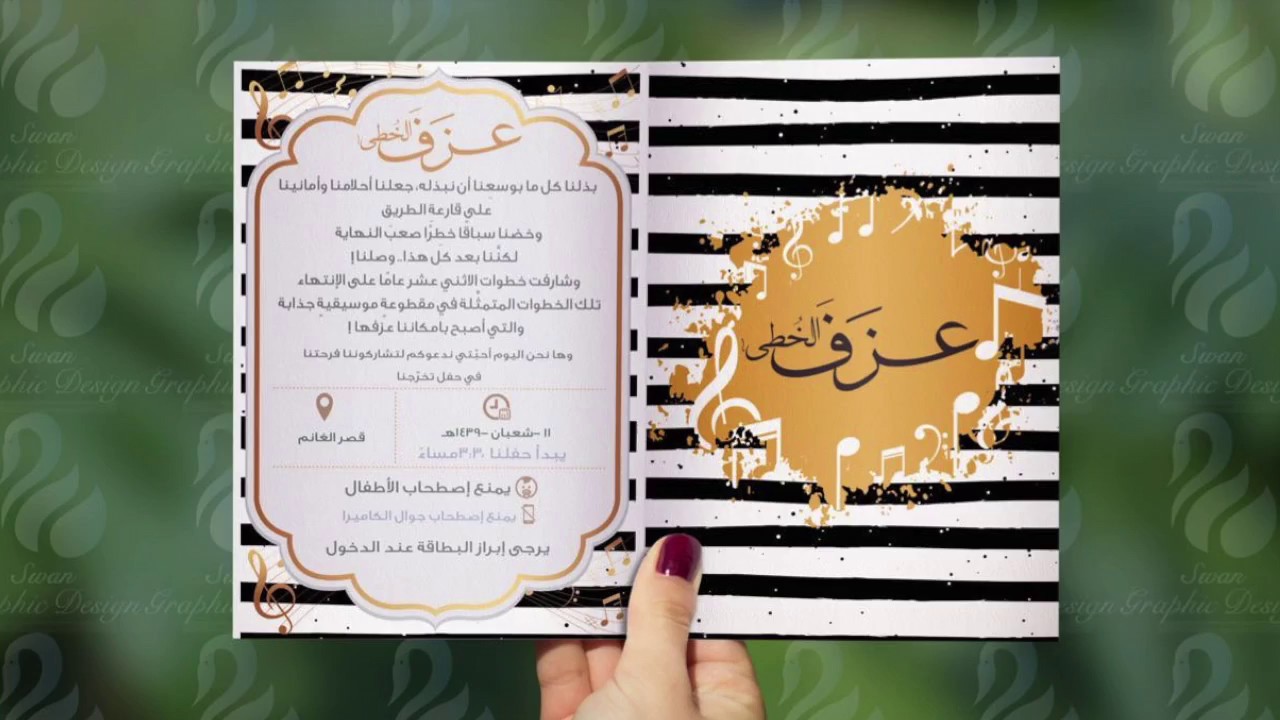 عزف الخُطى
بذلنا كل ما بوسعِنا أن نبذله، جعلنا أحلامنا وأمانينا
على قارعة الطريق
وخضنا سباقًا خطِرًا صعبَ النهاية
لكنَّنا بعد كل هذا.. وصلنا!
وشارفت خطوات الاثني عشر عامًا على الإنتهاء
تلك الخطوات المتمثّلة في مقطوعةٍ موسيقيةٍ جذابة
والتي أصبح بامكاننا عزفها !
وها نحن اليوم أحبّتي ندعوكم لتشاركوننا فرحتنا
في حفل تخرّجنا
١١ -شعبان -١٤٣٩هـ
يبدأ حفلنا ٣:٣٠مساءً
قصر الغانم
يمنع إصطحاب الأطفال
يمنع إصطحاب جوال الكاميرا
يرجى إبراز البطاقة عند الدخول
عزف الخُطى
Swan
Graphic Design